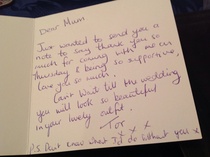 Dear Mum
Just wanted to send you a
note to say thank you so
much for coming with me on
Thursday & being so supportive,
love you so much.
Can't wait till the wedding
you will look so beautiful
in your lovely outfit.
x x x
P.S. Don't know what I'd do without you x